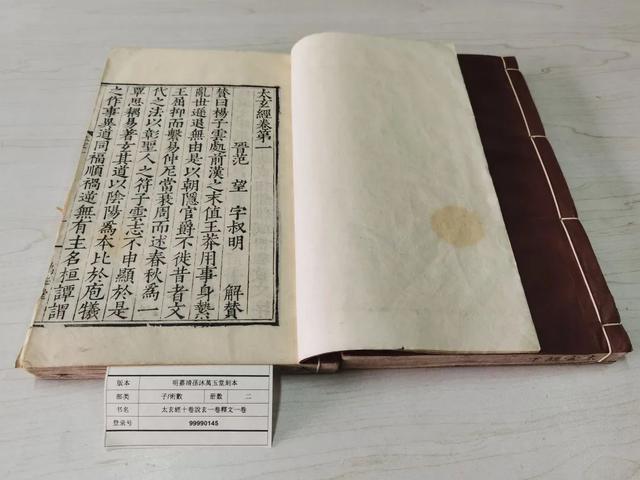 太玄經卷第一
晉范 望 字叔明 解贊
贊曰楊子雲處前漢之末值王莽用事身縶
亂世遜退無由是以朝隱官爵不徙昔者文
王屈抑而繫易仲尼當衰周而述春秋爲一
代之法以彰聖人之符子雲志不申顯於是
覃思耦易著玄其道以陰陽爲本比於庖犧
之作事異道同福順禍逆無有主名桓譚謂
版本 明嘉靖孫沐萬玉堂刻本
部类 子/術數 册數 二
书名 太玄經十卷說玄一卷釋文一卷
登录号 99990145